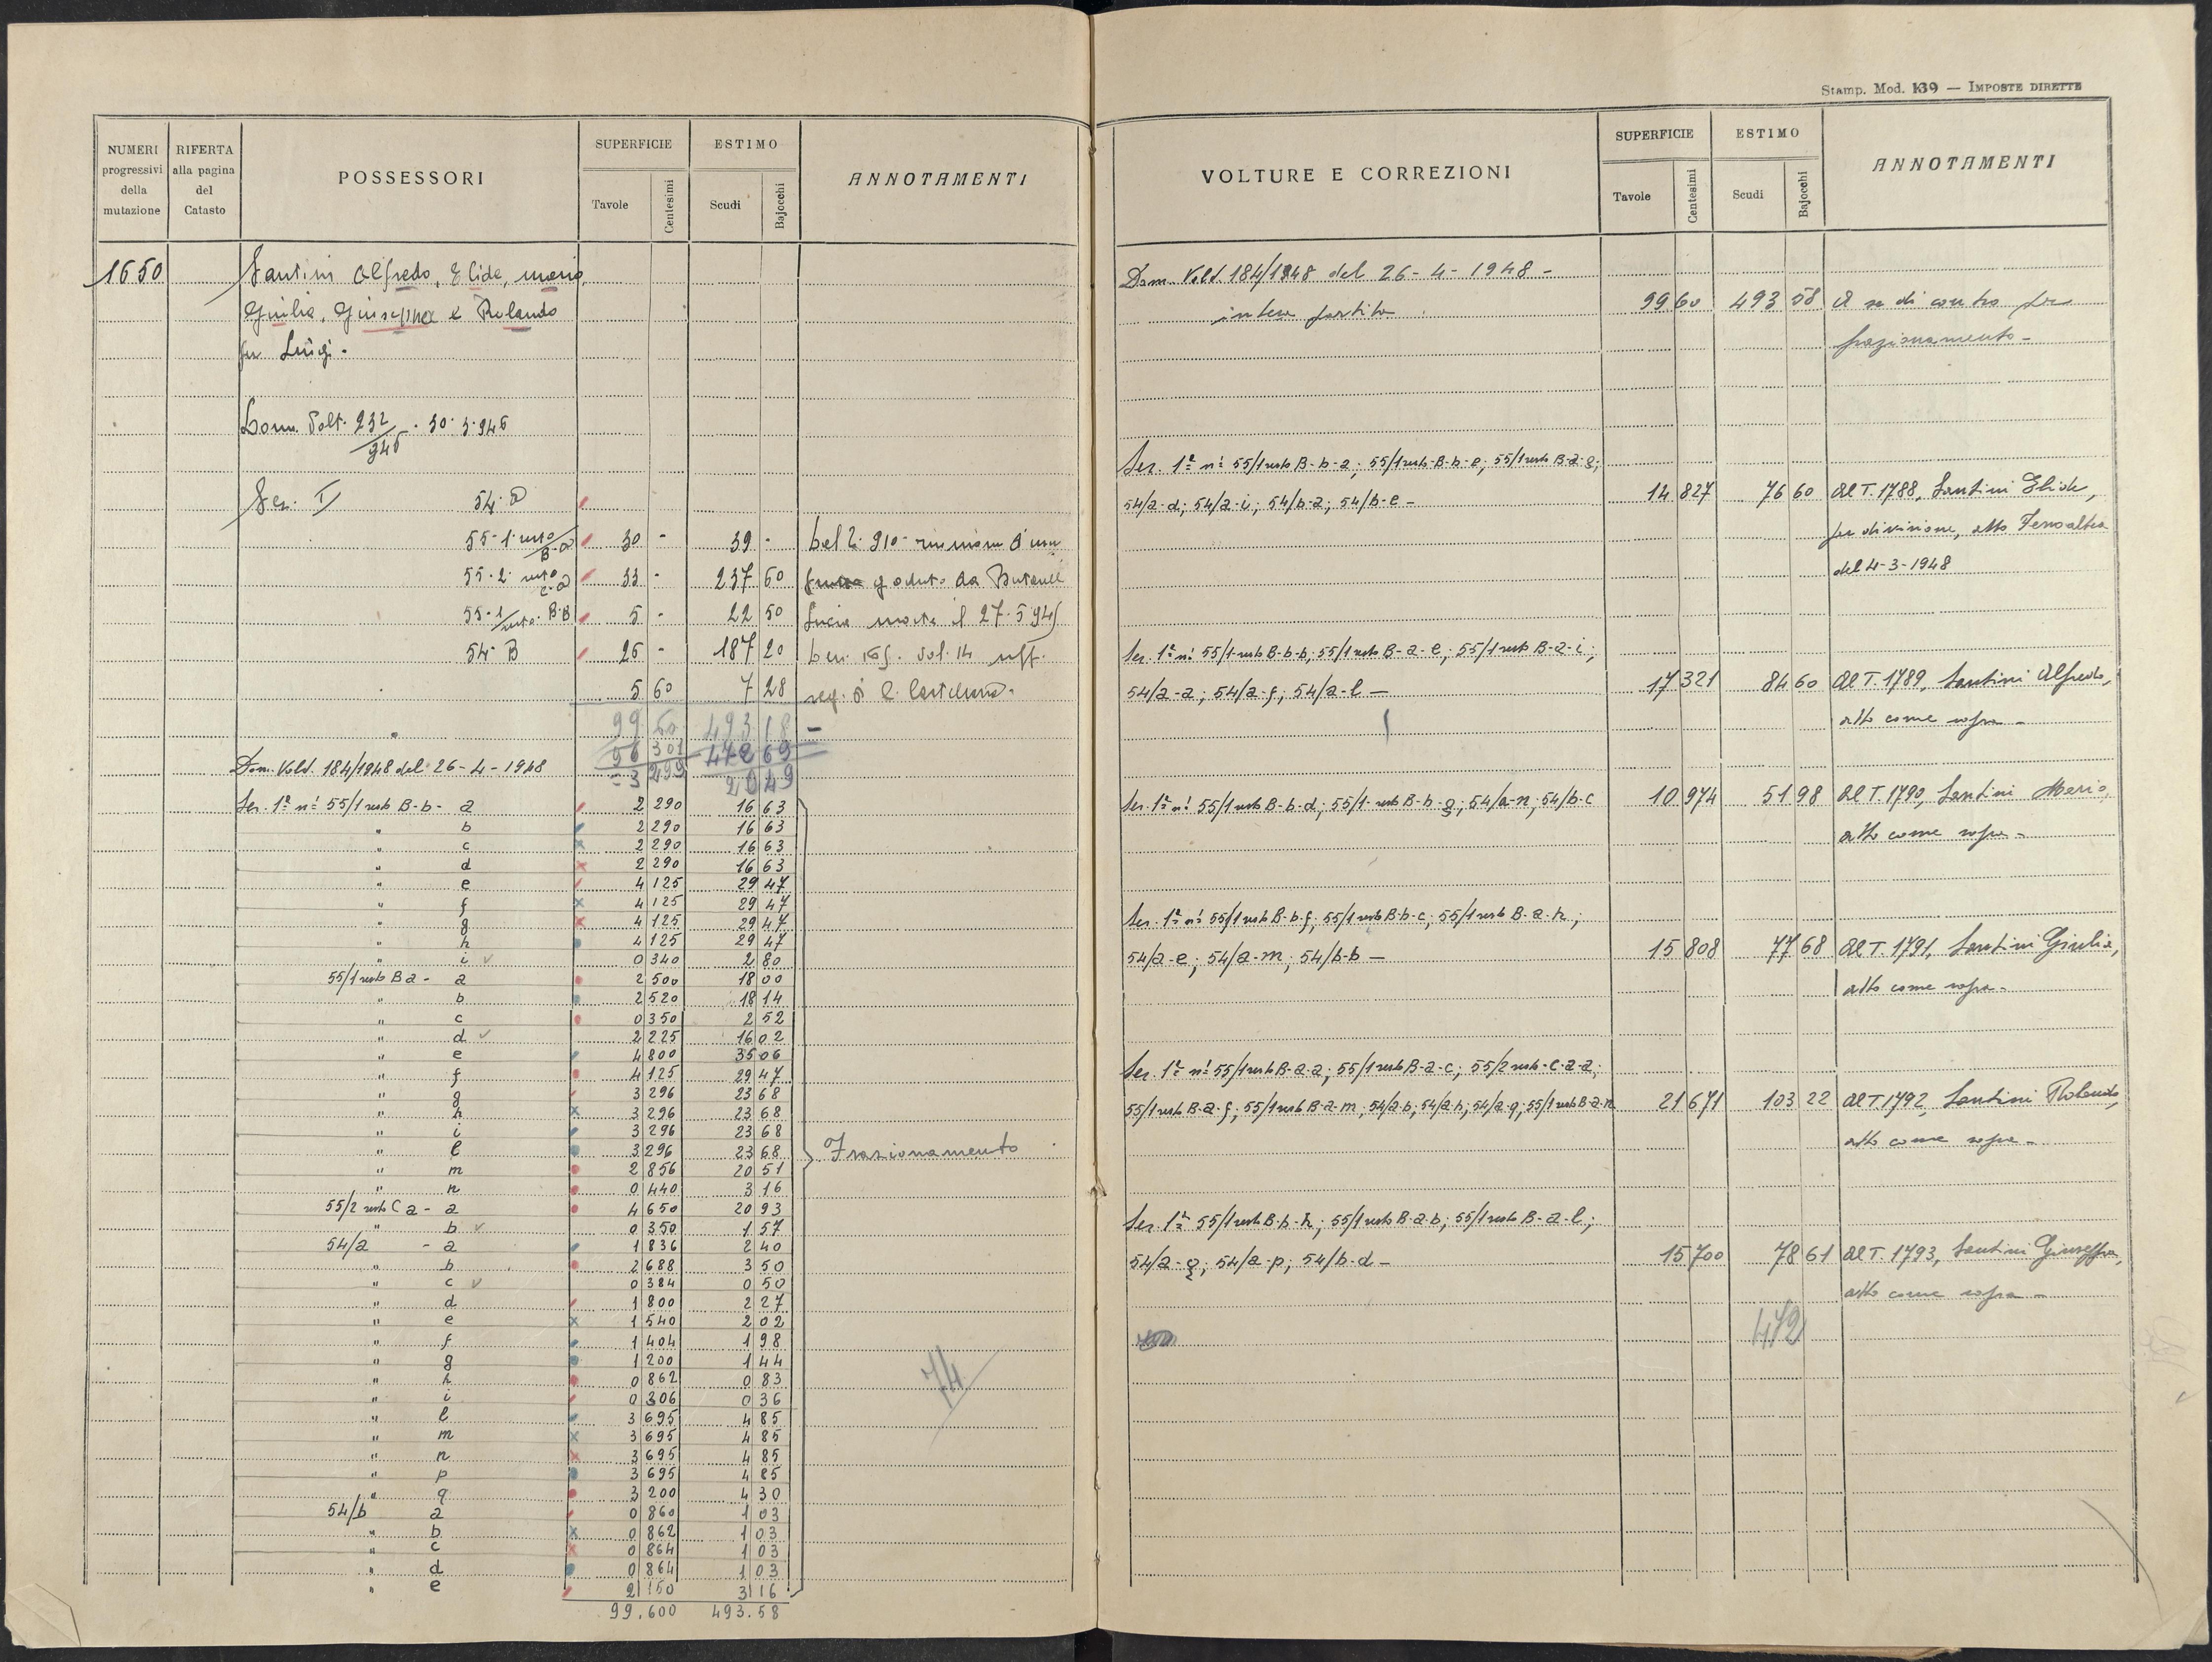 Stamp. Mod. 139 — IMPOSTE DIRETTE
NUMERI progressivi della mutazione
RIFERTA alla pagina del Catasto
POSSESSORI
SUPERFICIE
Tavole Centesimi
ESTIMO
Scudi Bajocchi
ANNOTAMENTI
1650 Santini Alfredo, Elide, Mario,
Giulia, Giuseppa e Rolando
fu Luigi.
Dom. Volt. 232/946 . 30.3.946
Sez. I 54. a
55-1 resto B-a 30 - 39 -
55.2 resto C-a 33 - 237 60 goduto da
55-1 resto B-B 5 - 22 50 Lucia morta il 27.5.945
54-B 26 - 187 20 den. 165. Vol. 14 uff.
5 60 7 28 reg. di C.
99 60 493 18
96 301 472 69
3 299 20 49
Dom. Volt. 184/1948 del 26-4-1948
Sez. 1ª n! 55/1 resto B-b- a 2 290 16 63
" b 2 290 16 63
" c 2 290 16 63
" d 2 290 16 63
" e 4 125 29 47
" f 4 125 29 47
" g 4 125 29 47
" h 4 125 29 47
" i 0 340 2 80
55/1 resto B a - a 2 500 18 00
" b 2 520 18 14
" c 0 350 2 52
" d 2 225 16 02
" e 4 800 35 06
" f 4 125 29 47
" g 3 296 23 68
" h 3 296 23 68
" i 3 296 23 68
" l 3 296 23 68 Frazionamento
" m 2 856 20 51
" n 0 440 3 16
55/2 resto C a - a 4 650 20 93
" b 0 350 1 57
54/a - a 1 836 2 40
" b 2 688 3 50
" c 0 384 0 50
" d 1 800 2 27
" e 1 540 2 02
" f 1 404 1 98
" g 1 200 1 44
" h 0 862 0 83
74
" i 0 306 0 36
" l 3 695 4 85
" m 3 695 4 85
" n 3 695 4 85
" p 3 695 4 85
" q 3 200 4 30
54/b a 0 860 1 03
" b 0 862 1 03
" c 0 864 1 03
" d 0 864 1 03
" e 2 150 3 16
99.600 493.58
VOLTURE E CORREZIONI
SUPERFICIE
Tavole Centesimi
ESTIMO
Scudi Bajocchi
ANNOTAMENTI
Dom. Volt. 184/1948 del 26-4-1948 -
intera partita 99 60 493 58 A se di contro per
frazionamento -
Sez. 1ª n! 55/1 resto B-b-a; 55/1 resto B-b-e; 55/1 resto B-a-g;
54/a-d; 54/a-i; 54/b-a; 54/b-e - 14 827 76 60 Al T. 1788, Santini Elide,
per divisione, atto
del 4-3-1948
Sez. 1ª n! 55/1 resto B-b-b; 55/1 resto B-a-e; 55/1 resto B-a-i;
54/a-a; 54/a-f; 54/a-l - 17 321 84 60 Al T. 1789, Santini Alfredo,
atto come sopra -
Sez. 1ª n! 55/1 resto B-b-d; 55/1 resto B-b-g; 54/a-n; 54/b-c 10 974 51 98 Al T. 1790, Santini Mario,
atto come sopra -
Sez. 1ª n! 55/1 resto B-b-f; 55/1 resto B-b-c; 55/1 resto B-a-h;
54/a-e; 54/a-m; 54/b-b - 15 808 77 68 Al T. 1791, Santini Giulia,
atto come sopra -
Sez. 1ª n! 55/1 resto B-a-a; 55/1 resto B-a-c; 55/2 resto C-a-a;
55/1 resto B-a-f; 55/1 resto B-a-m; 54/a-b; 54/a-h; 54/a-q; 55/1 resto B-a-n 21 671 103 22 Al T. 1792, Santini Rolando,
atto come sopra -
Sez. 1ª 55/1 resto B-b-h; 55/1 resto B-a-b; 55/1 resto B-a-l;
54/a-g; 54/a-p; 54/b-d - 15 700 78 61 Al T. 1793, Santini Giuseppa,
atto come sopra -
472